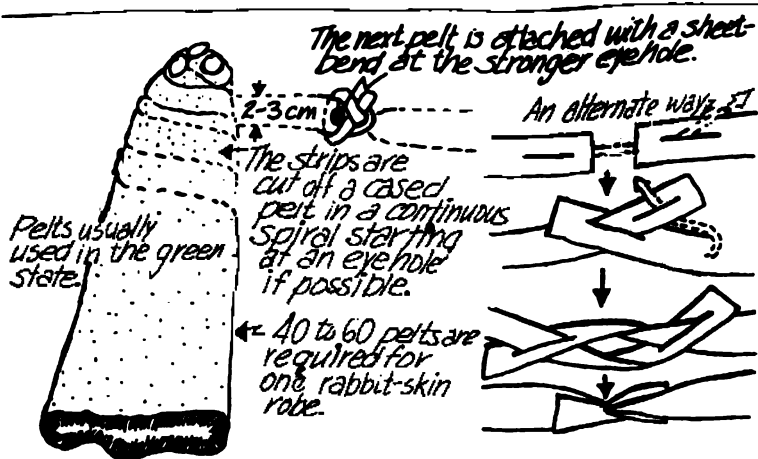 The next pelt is attached with a sheet-
bend at the stronger eyehole.
2-3 cm
An alternate way:
The strips are
cut off a cased
pelt in a continuous
spiral starting
at an eyehole
if possible.
Pelts usually
used in the green
state.
40 to 60 pelts are
required for
one rabbit-skin
robe.